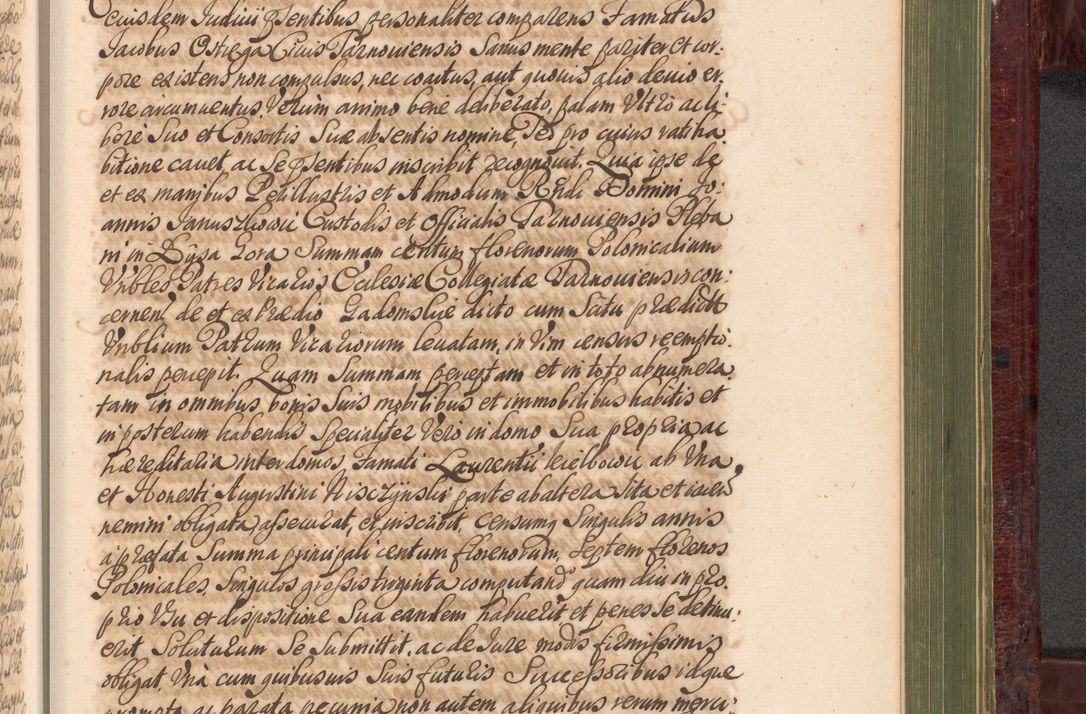 eiusdem Iudicii psentibus personaliter comparens Famatus
Iacobus Ostręga Civis Tarnoviensis Sanus mente pariter et cor-
pore existens non compulsus, nec coactus, aut quovis alio devio er-
rore circumventus, Verùm animo benè deliberato, palam Ultrò ac li-
berè Suo et Consortis Suæ absentis nomine, pro cuius ratiha
bitione cavet, ac Se psentibus inscribit recognovit. Quia ipse de
et ex manibus Perillustris et Admodum Rndi Domini Jo-
annis Januszkowic Custodis et Officialis Tarnoviensis Pleba
ni in Łysa Gora Summam centum florenorum Polonicalium
Vnbles Patres Vicarios Ecclesiæ Collegiatæ Tarnoviensis con-
cernen de et ex Prædio Gadomskie dicto cum Scitu prædictt
Vnblium Patrum Vicariorum levatam, in Vim census reemptio-
nalis percepit. Quam Summam perceptam et in toto abnumera-
tam in omnibus bonis Suis mobilibus et immobilibus habitis et
in posterum habendis Specialiter Verò in domo Sua propria ac
hæreditaria inter domos Famati Laurentii Kiełbowic ab Una
et Honesti Augustini parte ab altera Sita et iacen
nemini obligata, assecurat, et inscribit, censumq Singulis annis
a præfata Summa principali centum florenorum, Septem florenos
Polonicales, Singulos grossis triginta computand quam diu in pro
prio Usu et dispositione Sua eandem habuerit et penes Se detinu-
erit Soluturum Se Submittit, ac de Iure modis firmissimis
obligat, Unà cum quibusvis Suis futuris Successoribus idque
prompta ac parata pecunia non autem aliquibus rerum merci-